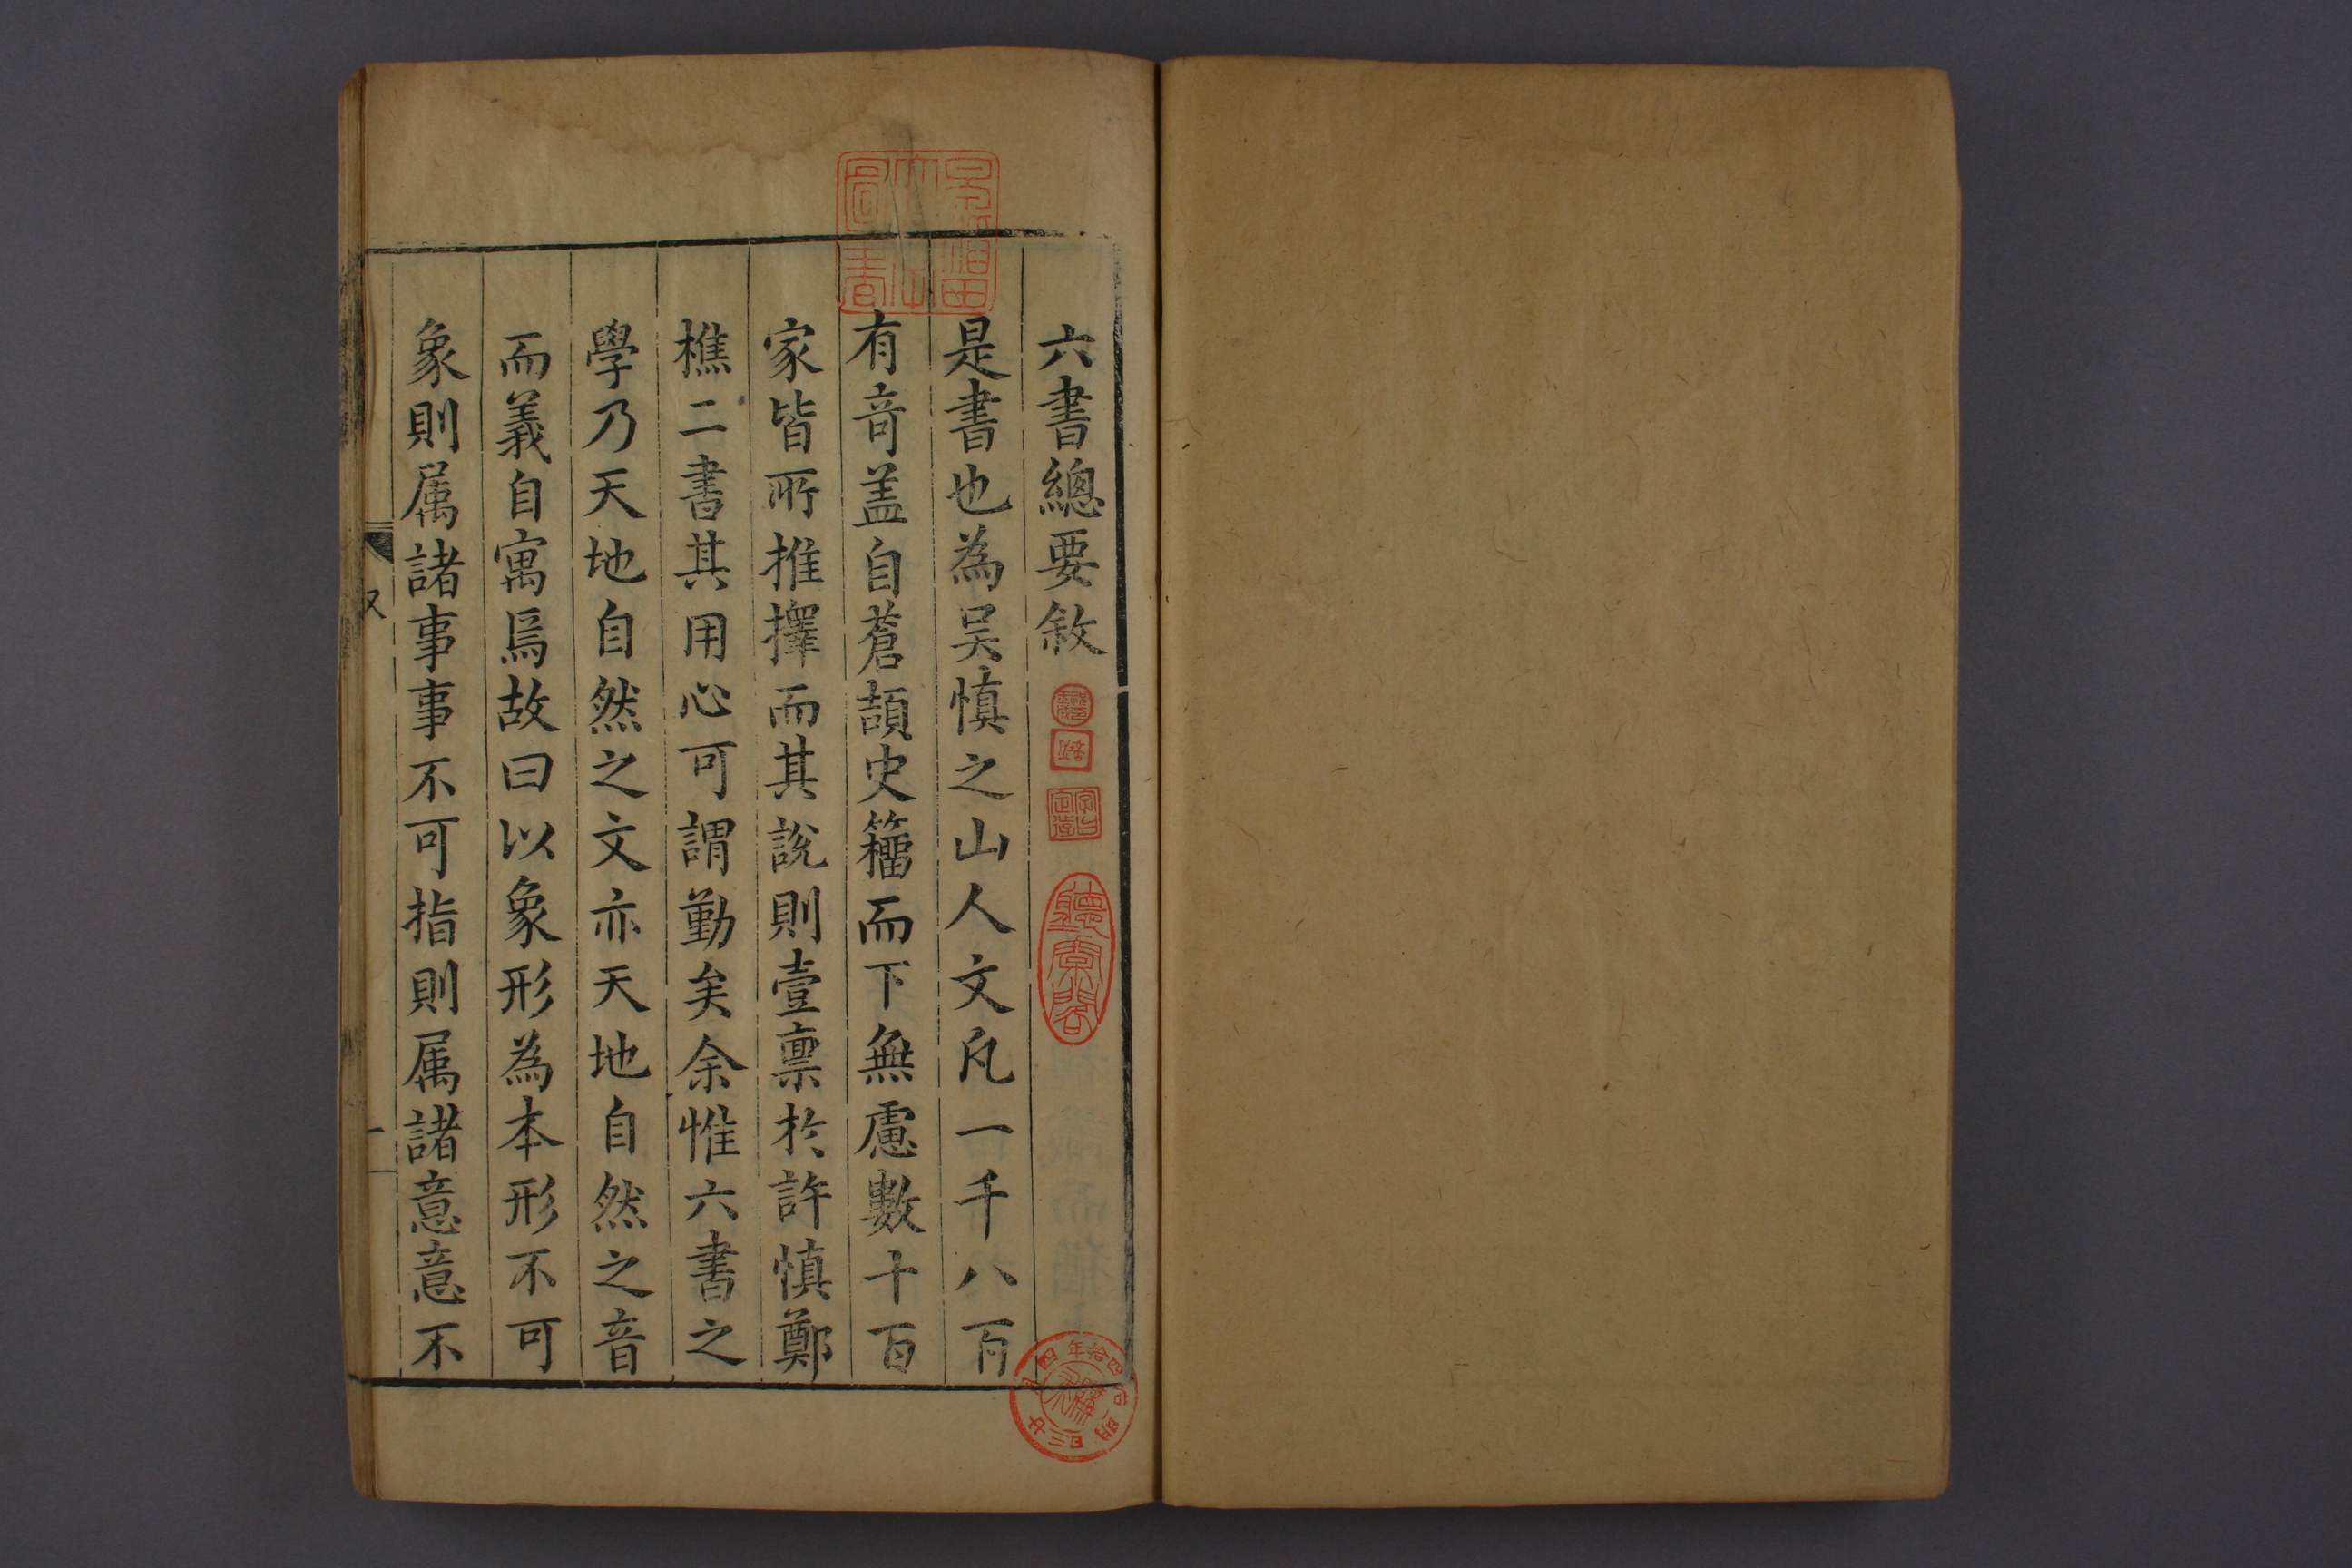 六書總要敘
是書也為吴慎之山人文凡一千八百
有奇盖自蒼頡史籀而下無慮數十百
家皆所推擇而其說則壹禀於許慎鄭
樵二書其用心可謂勤矣余惟六書之
學乃天地自然之文亦天地自然之音
而義自寓焉故曰以象形為本形不可
象則属諸事事不可指則属諸意意不
一
聽雨閣